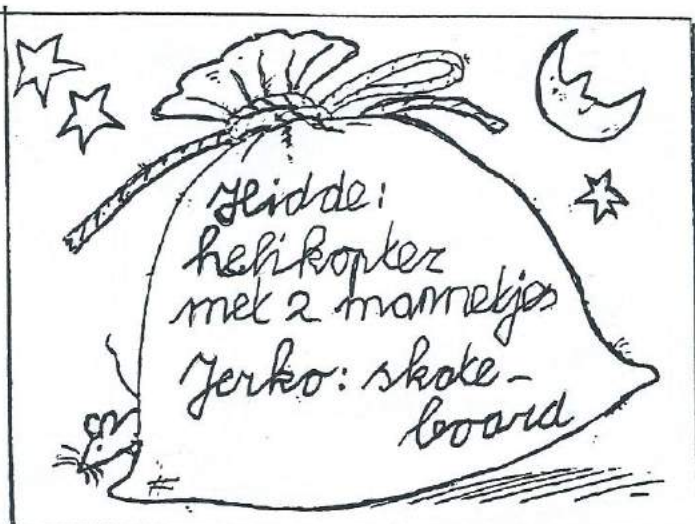 Hidde:
helikopter
met 2 mannetjes
Jerko: skate-
board